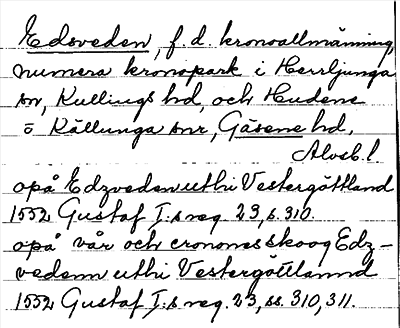 Edsveden, f.d. kronoallmänning,
numera kronopark i Herrljunga
sn, Kullings hd, och Hudene
o Källunga snr, Gäsene hd,
Älvsb. l
opå Edzveden uthi Vestergöttland
1552 Gustaf I:s reg. 23, s. 310.
opå vår och cronones skoog Edz-
vedenn uthi Vestergöttlannd
1552 Gustaf I:s reg. 23, ss. 310, 311.